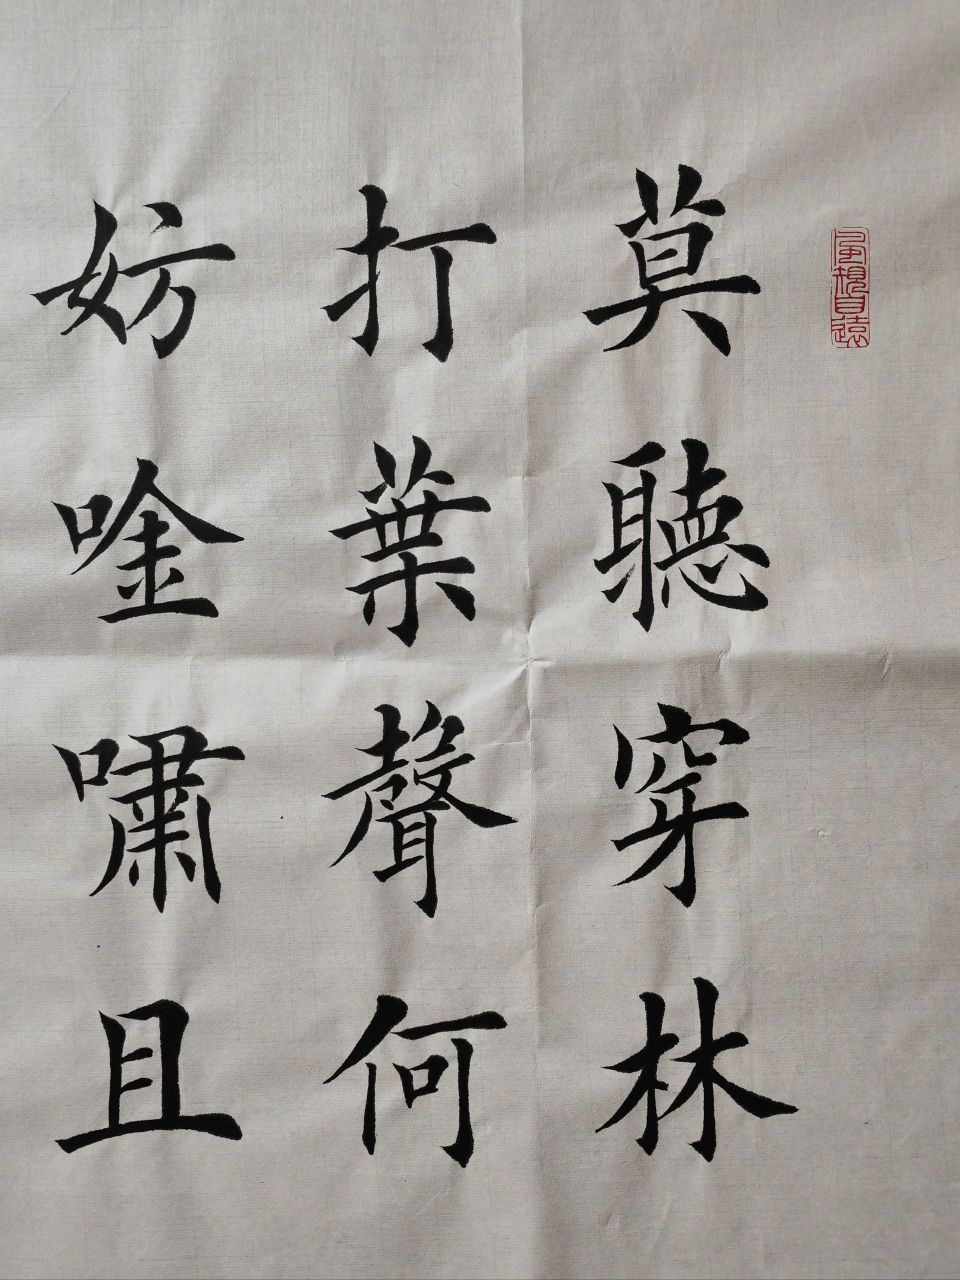 莫聽穿林
打葉聲何
妨唫嘯且